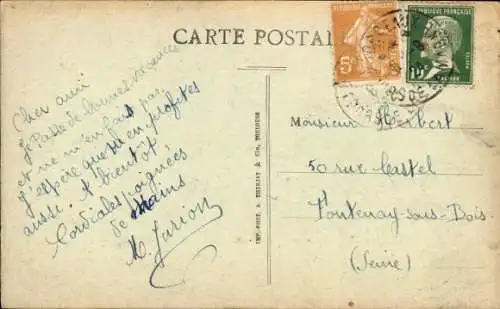 CARTE POSTALE
REPUBLIQUE FRANÇAISE
5c
POSTES
Cher ami
je Passe de bonnes vacances
et ne m'en fais pas
J'espère que tu en profites
aussi. A bientôt
Cordiales poignées
de mains
M. Jurion
IMP.-PHOT. A. THIRIAT & Cie, TOULOUSE
Monsieur Herbert
50 rue Castel
Fontenay-sous-Bois
(Seine)